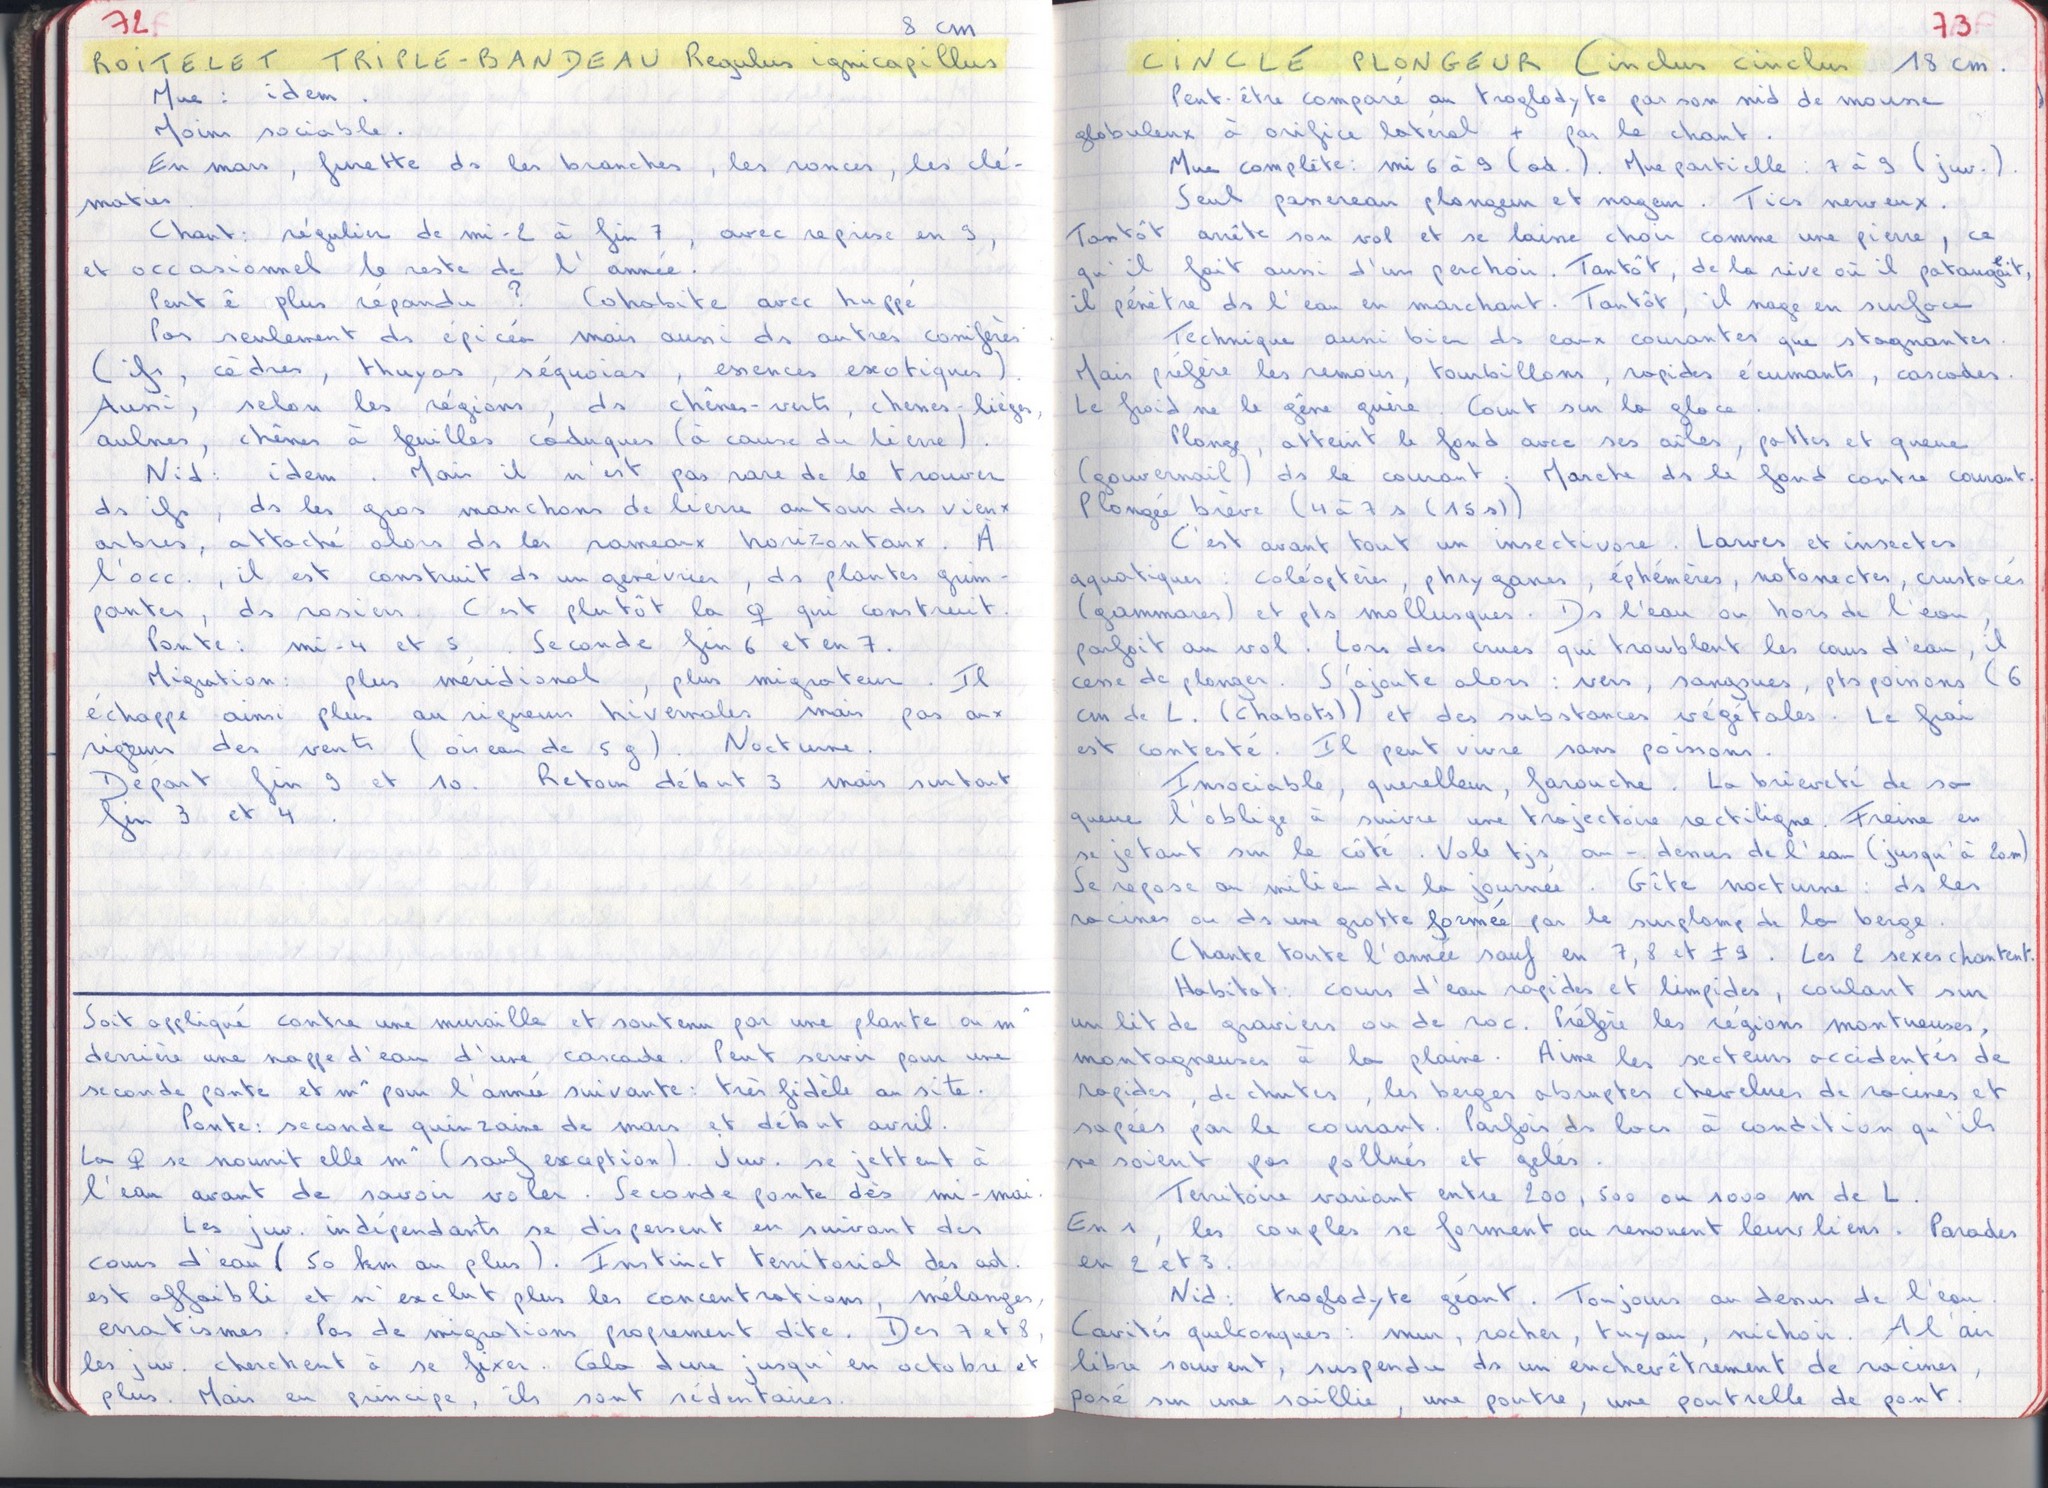 72
8 cm
ROITELET TRIPLE-BANDEAU Regulus ignicapillus
Mue : idem .
Moins sociable .
En mars , furette ds les branches , les ronces , les clé-
maties .
Chant : régulier de mi-2 à fin 7 , avec reprise en 9 ,
et occasionnel le reste de l'année .
Peut ê plus répandu ? Cohabite avec huppé
Pas seulement ds épicéa mais aussi ds autres conifères
( ifs , cèdres , thuyas , séquoias , essences exotiques ) .
Aussi , selon les régions , ds chênes-verts , chenes-lièges ,
aulnes , chênes à feuilles caduques ( à cause du lierre ) .
Nid : idem . Mais il n'est pas rare de le trouver
ds ifs , ds les gros manchons de lierre autour des vieux
arbres , attaché alors ds les rameaux horizontaux . À
l'occ . , il est construit ds un genévrier , ds plantes grim-
pantes , ds rosiers . C'est plutôt la ♀ qui construit .
Ponte : mi-4 et 5 . Seconde fin 6 et en 7 .
Migration : plus méridional , plus migrateur . Il
échappe ainsi plus au rigueurs hivernales mais pas aux
rigueurs des vents ( oiseau de 5 g ) . Nocturne .
Départ fin 9 et 10 . Retour début 3 mais surtout
fin 3 et 4 .
Soit appliqué contre une muraille et soutenu par une plante ou m^
derrière une nappe d'eau d'une cascade . Peut servir pour une
seconde ponte et m^ pour l'année suivante : très fidèle au site .
Ponte : seconde quinzaine de mars et début avril .
La ♀ se nourrit elle m^ ( sauf exception ) . Juv . se jettent à
l'eau avant de savoir voler . Seconde ponte dès mi-mai .
Les juv . indépendants se dispersent en suivant des
cours d'eau ( 50 km au plus ) . Instinct territorial des ad .
est affaibli et n'exclut plus les concentrations , mélanges ,
erratismes . Pas de migrations proprement dite . Des 7 et 8 ,
les juv . cherchent à se fixer . Cela dure jusqu'en octobre et
plus . Mais en principe , ils sont sédentaires .
73
CINCLE PLONGEUR Cinclus cinclus 18 cm .
Peut-être comparé au troglodyte par son nid de mousse
globuleux à orifice latéral + par le chant .
Mue complète : mi 6 à 9 ( ad . ) . Mue partielle : 7 à 9 ( juv . ) .
Seul passereau plongeur et nageur . Tics nerveux .
Tantôt arrête son vol et se laisse choir comme une pierre , ce
qu'il fait aussi d'un perchoir . Tantôt , de la rive où il pataugeait ,
il pénètre ds l'eau en marchant . Tantôt , il nage en surface
Technique aussi bien ds eaux courantes que stagnantes .
Mais préfère les remous , tourbillons , rapides écumants , cascades .
Le froid ne le gêne guère . Court sur la glace .
Plonge , atteint le fond avec ses ailes , pattes et queue
( gouvernail ) ds le courant . Marche ds le fond contre courant .
Plongée brève ( 4 à 7 s ( 15 s ) )
C'est avant tout un insectivore . Larves et insectes
aquatiques : coléoptères , phryganes , éphémères , notonectes , crustacés
( gammares ) et pts mollusques . Ds l'eau ou hors de l'eau ,
parfoit au vol . Lors des crues qui troublent les cours d'eau , il
cesse de plonger . S'ajoute alors : vers , sangsues , pts poissons ( 6
cm de L . ( chabots ) ) et des substances végétales . Le frai
est contesté . Il peut vivre sans poissons .
Insociable , querelleur , farouche . La brieveté de sa
queue l'oblige à suivre une trajectoire rectiligne . Freine en
se jetant sur le côté . Vole tjs au - dessus de l'eau ( jusqu'à 20 m )
Se repose au milieu de la journée . Gîte nocturne : ds les
racines ou ds une grotte formée par le surplomp de la berge .
Chante toute l'année sauf en 7 , 8 et ± 9 . Les 2 sexes chantent .
Habitat : cours d'eau rapides et limpides , coulant sur
un lit de graviers ou de roc . Préfère les régions montueuses ,
montagneuses à la plaine . Aime les secteurs accidentés de
rapides , de chutes , les berges abruptes chevelues de racines et
sapées par le courant . Parfois ds lacs à condition qu'ils
ne soient pas pollués et gelés .
Territoire variant entre 200 , 500 ou 1000 m de L .
En 1 , les couples se forment ou renouent leurs liens . Parades
en 2 et 3 .
Nid : troglodyte géant . Toujours au dessus de l'eau .
Cavités quelconques : mur , rocher , tuyau , nichoir . A l'air
libre souvent , suspendu ds un enchevêtrement de racines ,
posé sur une saillie , une poutre , une poutrelle de pont .